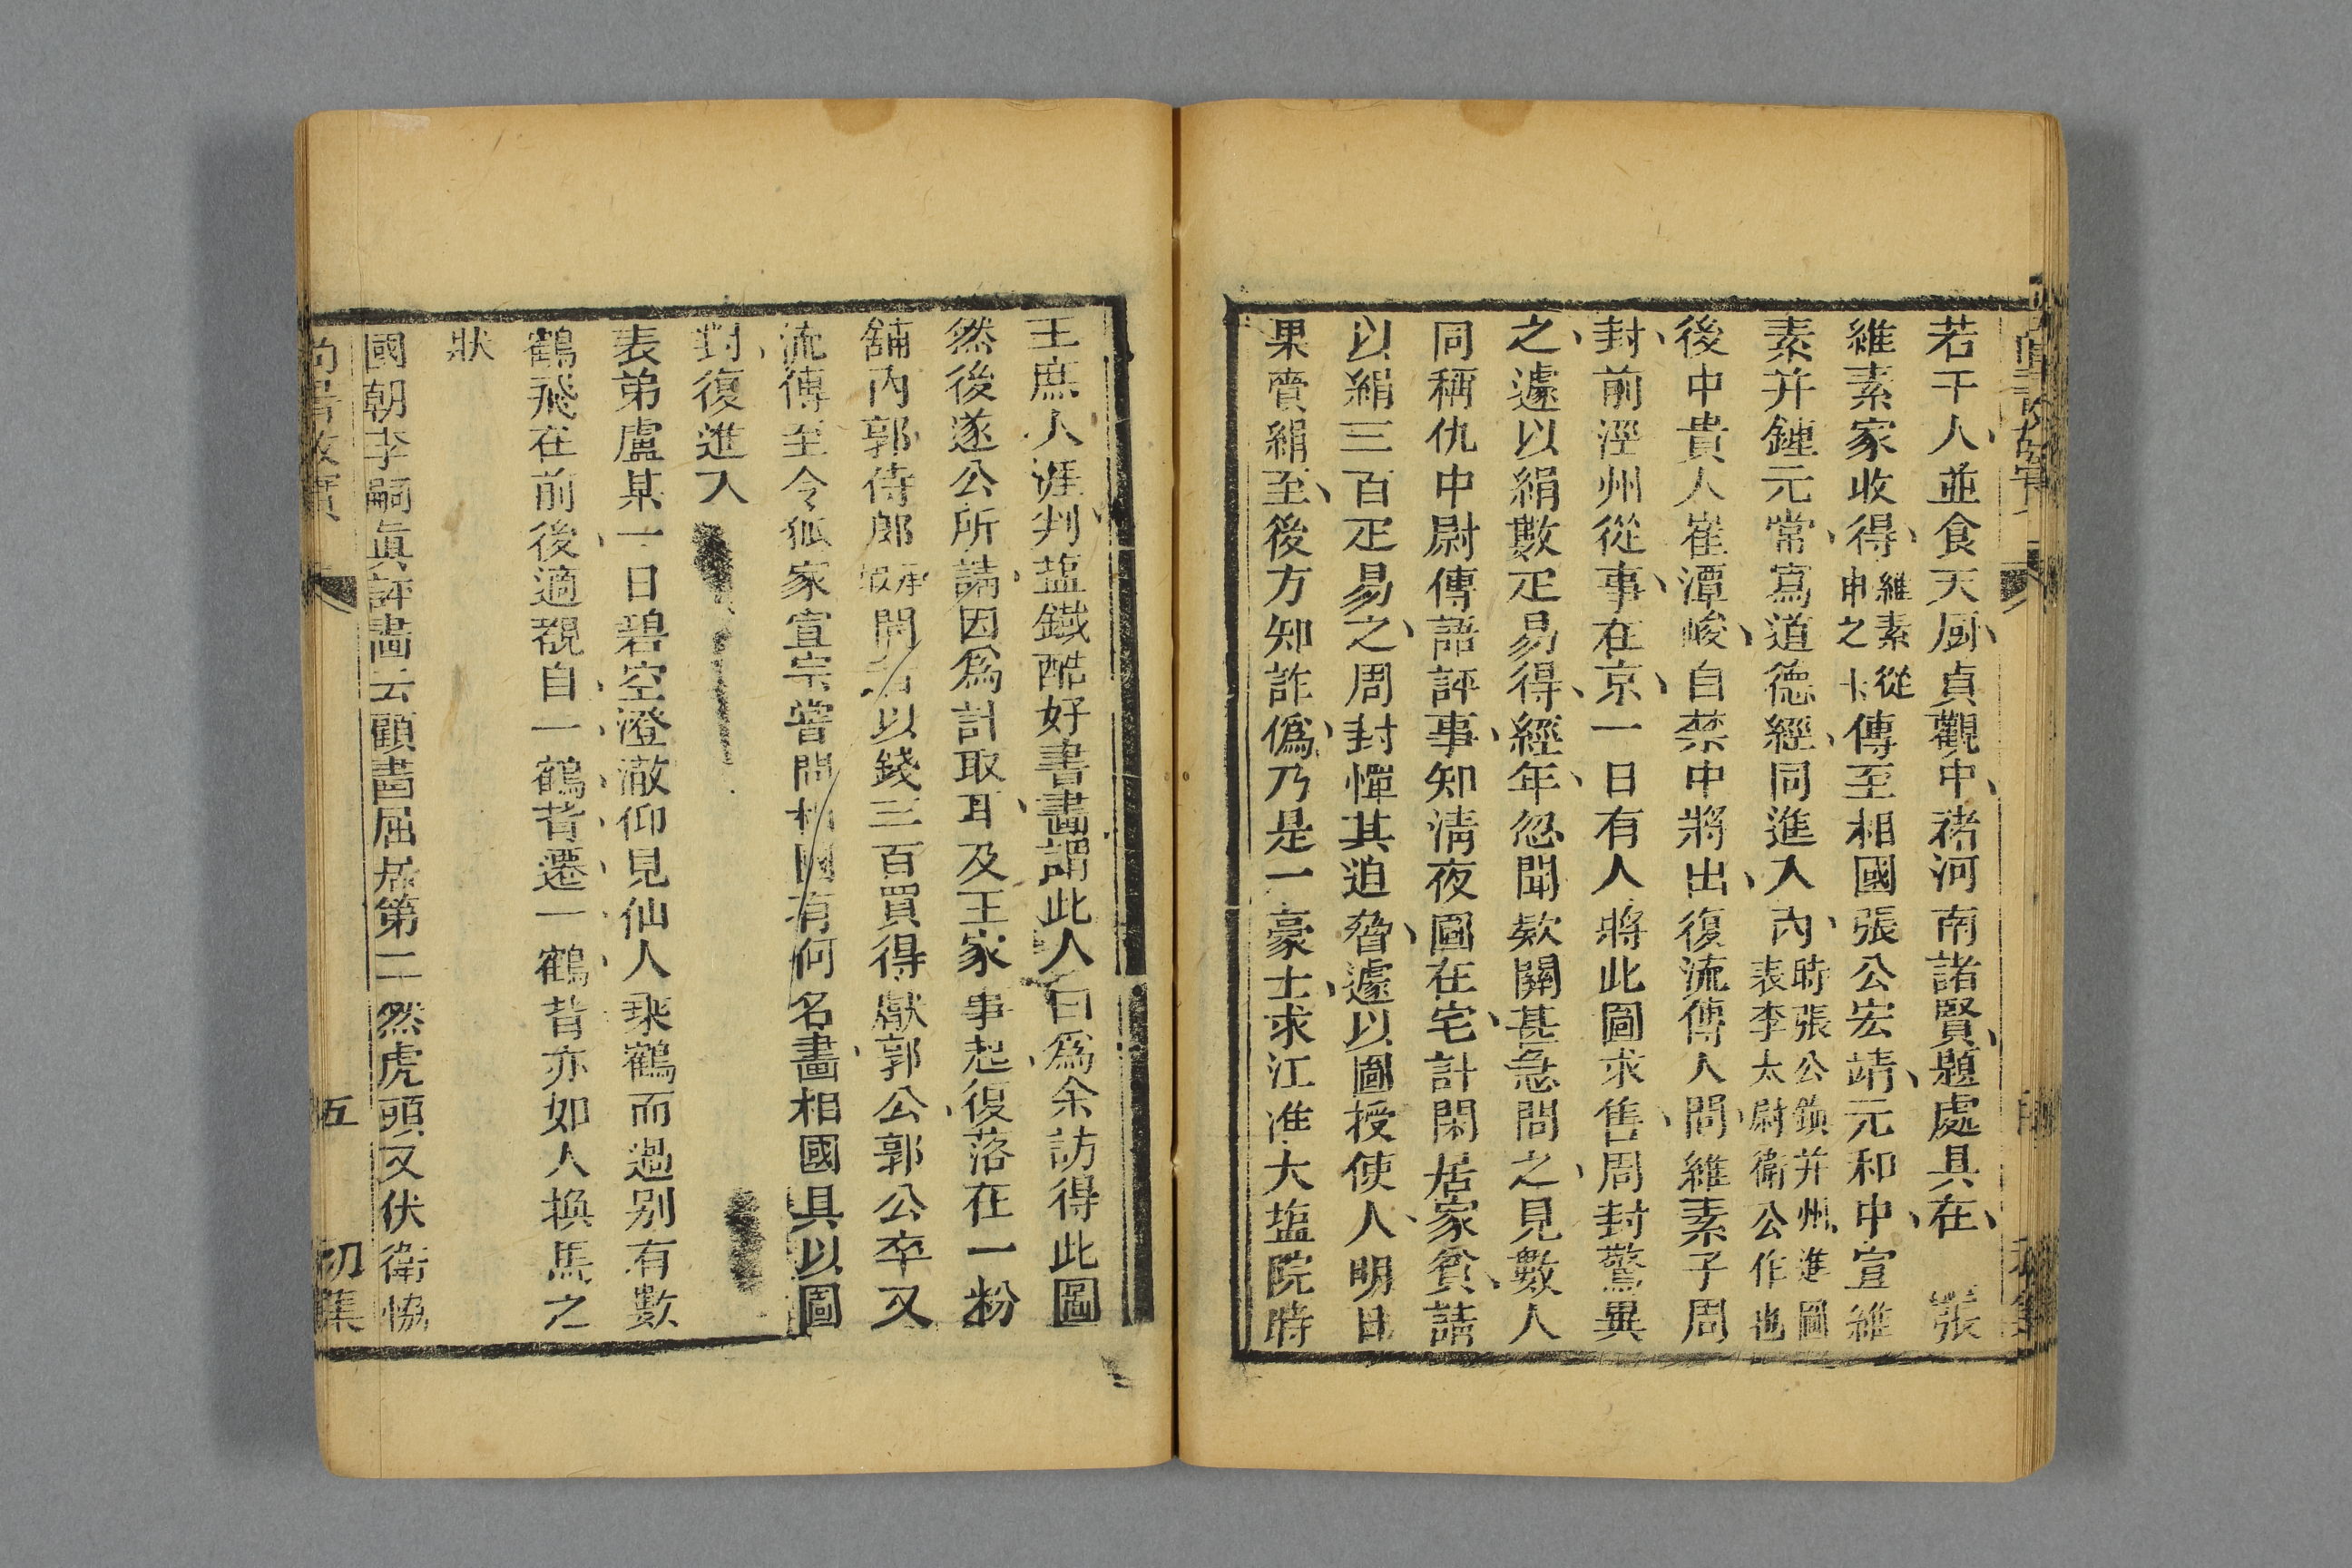 若干人並食天厨貞觀中禇河南諸賢題處具在　張
維素家收得維素從申之傳至相國張公宏靖元和中宣維
素并鍾元常寫道德經同進入內時張公鎮并州進圖表李太尉衛公作也
後中貴人崔潭峻自禁中將出復流傳人間維素子周
封前涇州從事在京一日有人將此圖求售周封驚異
之遽以絹數疋易得經年忽聞欵關甚急問之見數人
同稱仇中尉傳語評事知清夜圖在宅計閑居家貧請
以絹三百疋易之周封憚其迫脅遽以圖授使人明日
果賫絹至後方知詐偽乃是一豪士求江淮大塩院時
王庶人涯判塩鐵酷好書畫謂此人曰爲余訪得此圖
然後遂公所請因爲計取耳及王家事起復落在一粉
舖內郭侍郎承嘏閽者以錢三百買得獻郭公郭公卒又
流傳至令狐家宣宗嘗問相國有何名畫相國具以圖
對復進入
表弟盧某一日碧空澄澈仰見仙人乘鶴而過別有數
鶴飛在前後適覩自一鶴背遷一鶴背亦如人換馬之
狀
國朝李嗣真評畫云顧畫屈居第二然虎頭又伏衛協
尚書故實
五
初集